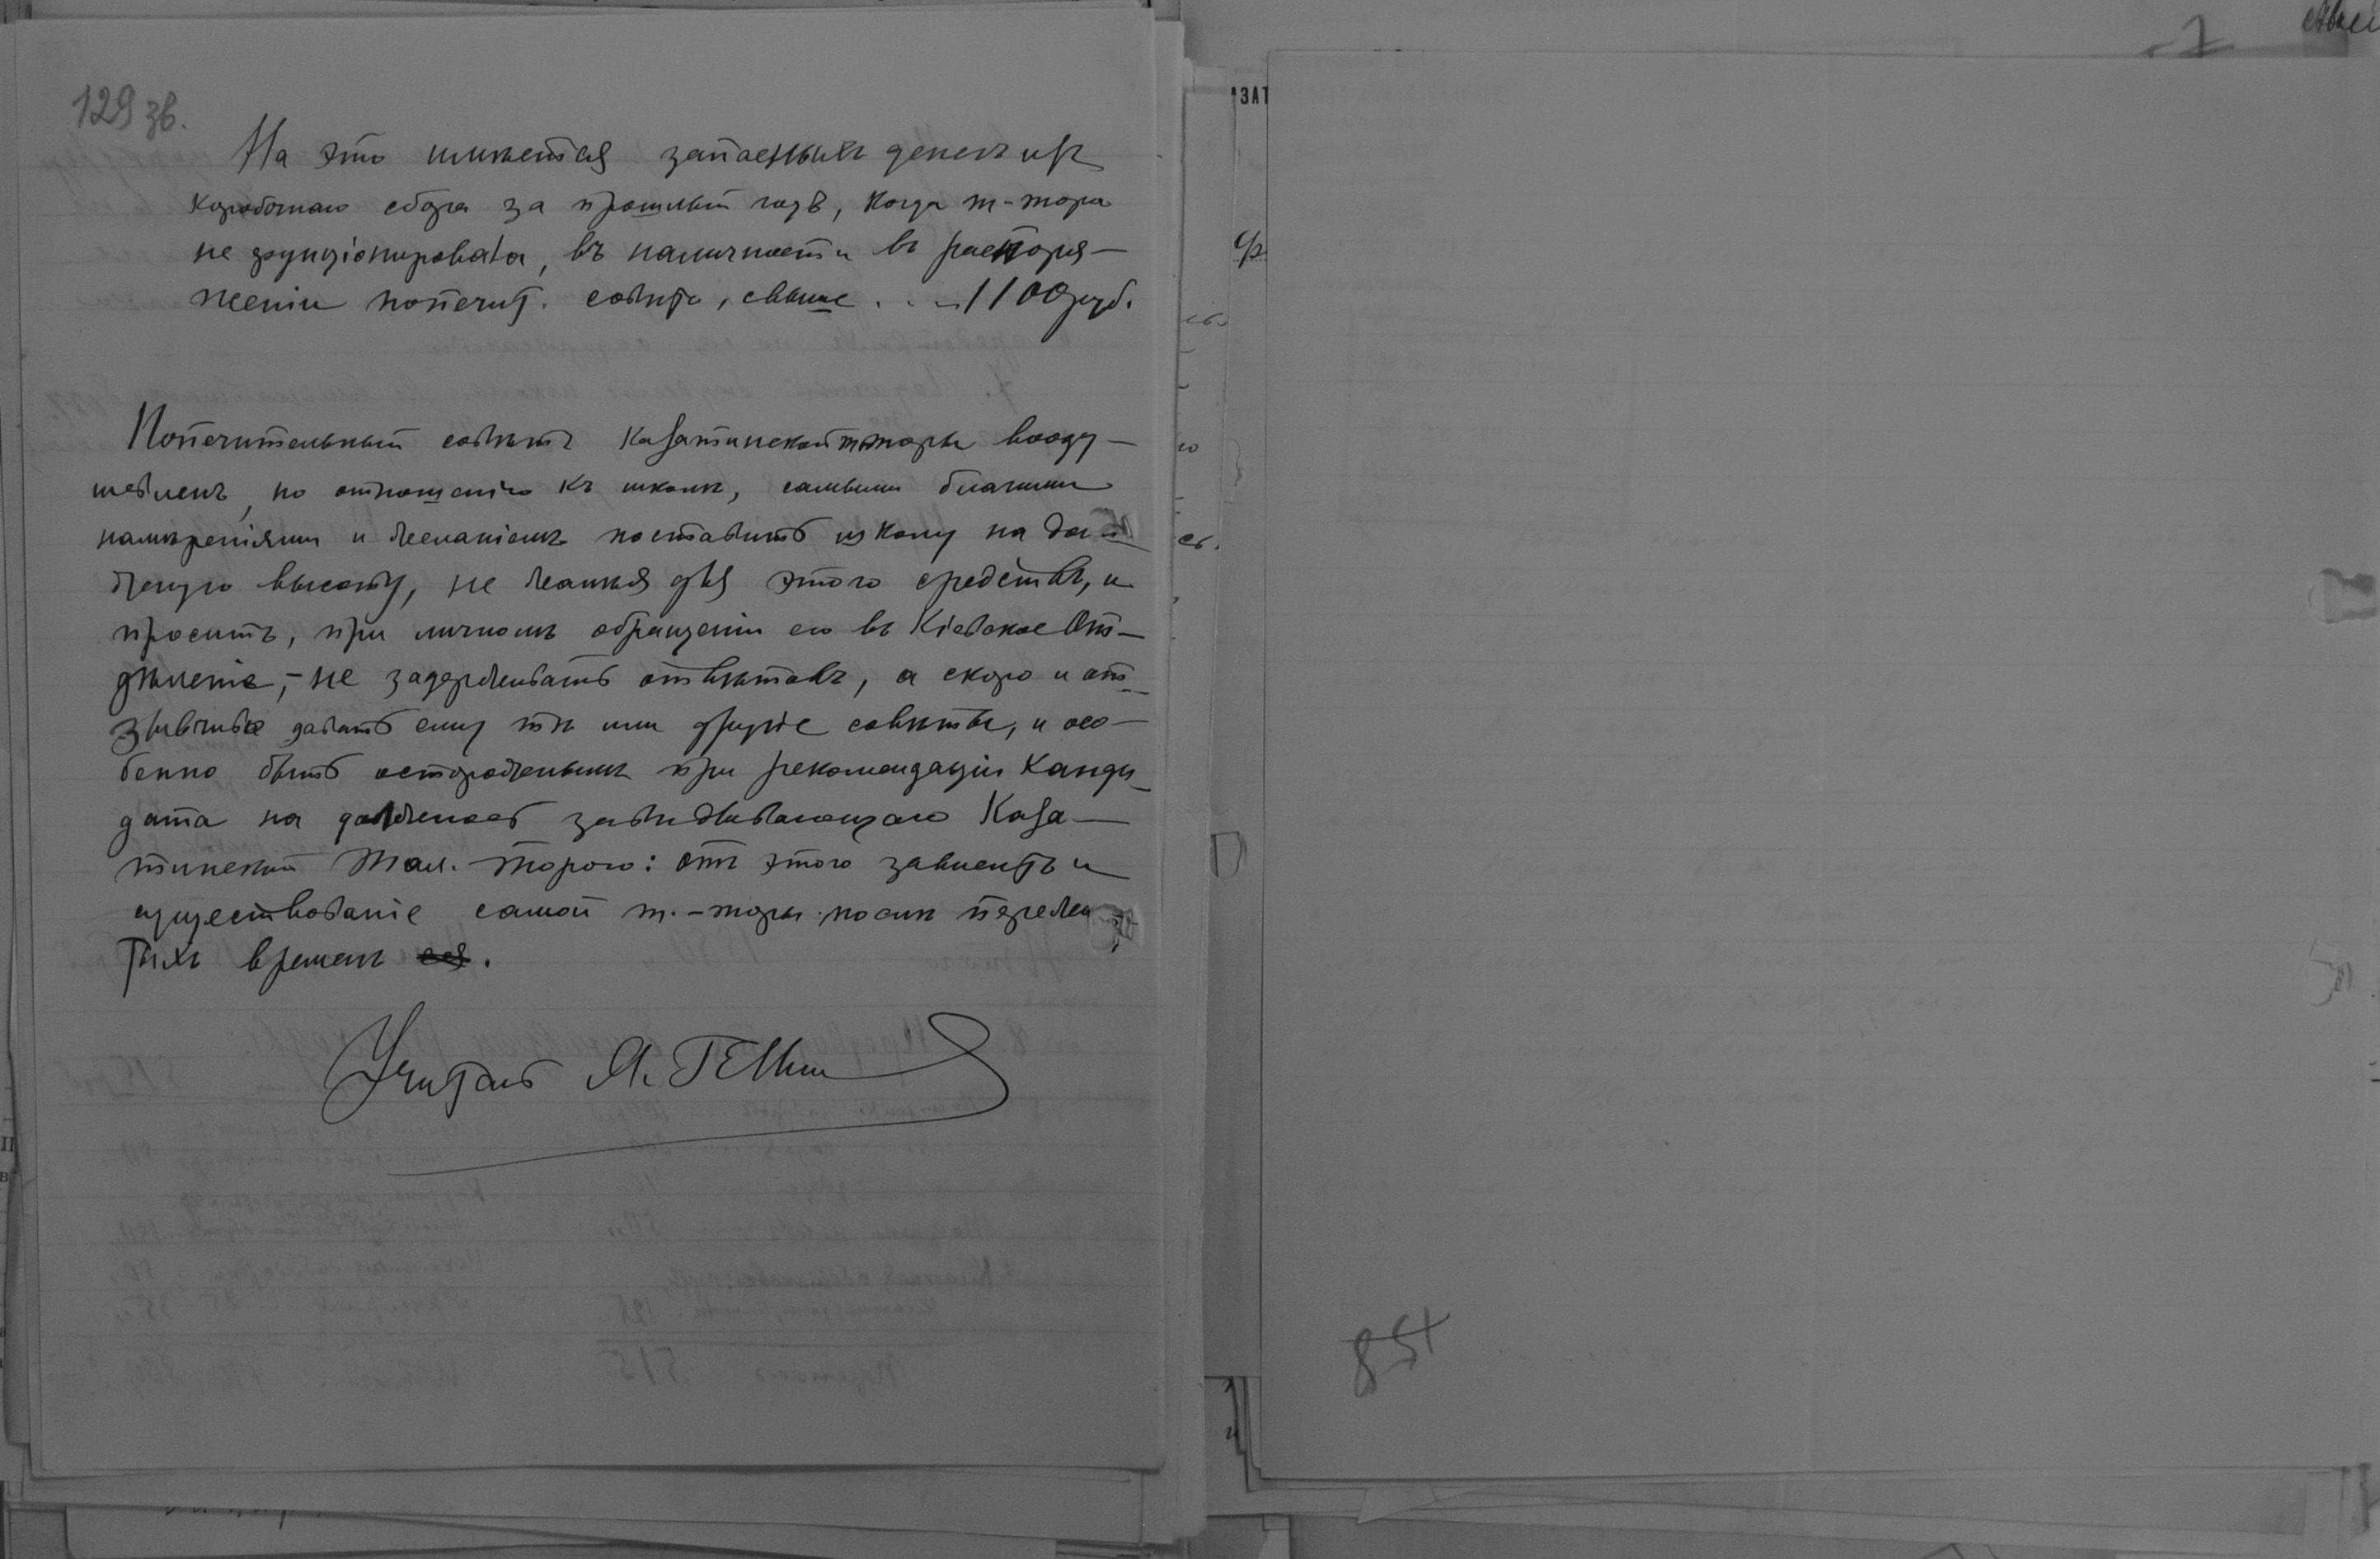 129 зв.
На это имѣется запасныхъ денегъ изъ
коробочнаго сбора за прошлый годъ, когда т-тора
не функціонировала, въ наличности въ распоря-
женіи попечит. совѣта, свыше . . — 1100 руб.
Попечительный совѣтъ Казатинской т-торы вооду-
шевленъ, по отношенію къ школѣ, самыми благими
намѣреніями и желаніемъ поставить школу на дол-
жную высоту, не жалѣя для этого средствъ, и
проситъ, при личномъ обращеніи его въ Кіевское От-
дѣленіе, — не задерживать отвѣтовъ, а скоро и от-
зывчиво давать ему тѣ или другіе совѣты, и осо-
бенно быть осторожнымъ при рекомендаціи канди-
дата на должность завѣдывающаго Каза-
тинской Талм. Торою: отъ этого зависитъ и
существованіе самой т.-торы послѣ пережи-
тыхъ временъ .
Учитель
854